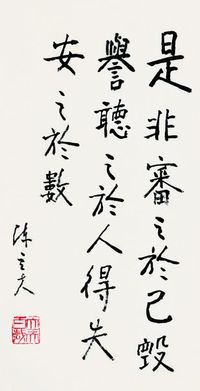 是非審之於己毀
譽聽之於人得失
安之於數
陳立夫